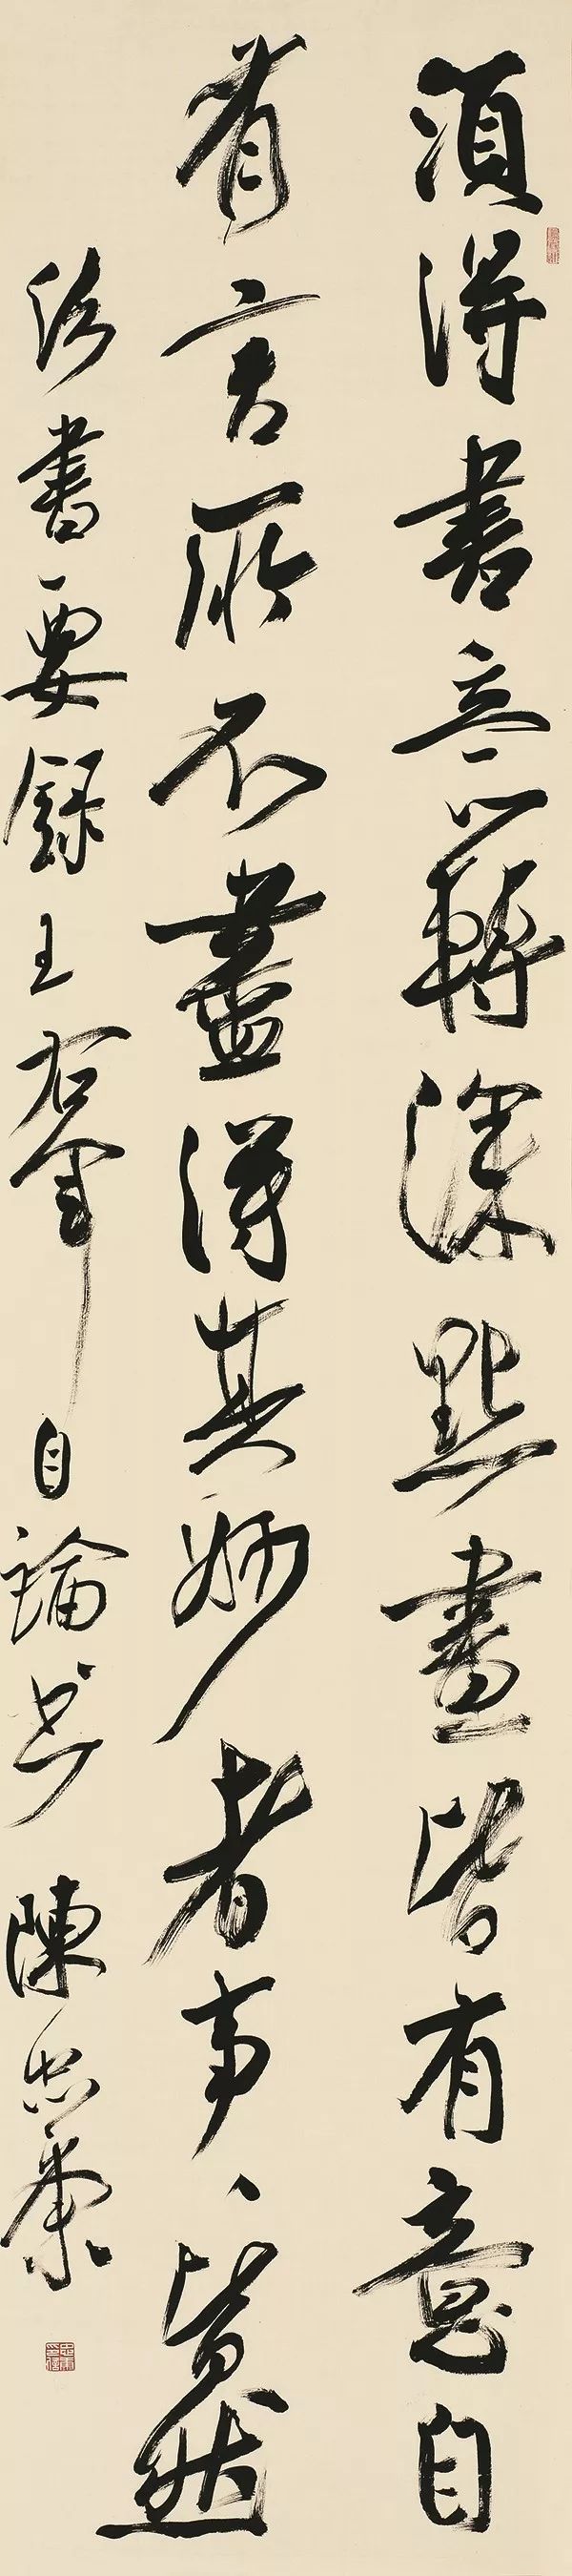 須得書意轉深點畫皆有意自
有言所不盡得其妙者事、皆然
法書要錄王右軍自論書 陳忠康